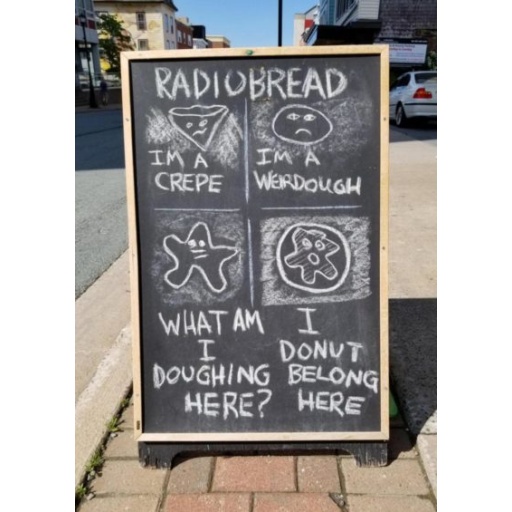 RADIOBREAD
IM A
CREPE
IM A
WEIRDOUGH
WHAT AM
I
DOUGHING
HERE?
I
DONUT
BELONG
HERE